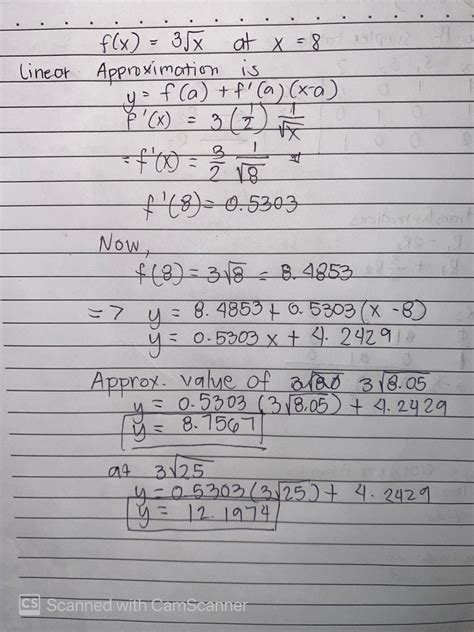 f(x) = 3√x at x = 8
Linear Approximation is
y = f(a) + f'(a)(x-a)
f'(x) = 3(1/2) 1/√x
= f'(x) = 3/2 1/√8
f'(8) = 0.5303
Now,
f(8) = 3√8 = 8.4853
=> y = 8.4853 + 0.5303(x - 8)
y = 0.5303x + 4.2429
Approx. value of 3√8.05
y = 0.5303(3√8.05) + 4.2429
y = 8.7567
at 3√25
y = 0.5303(3√25) + 4.2429
y = 12.1974
CS Scanned with CamScanner